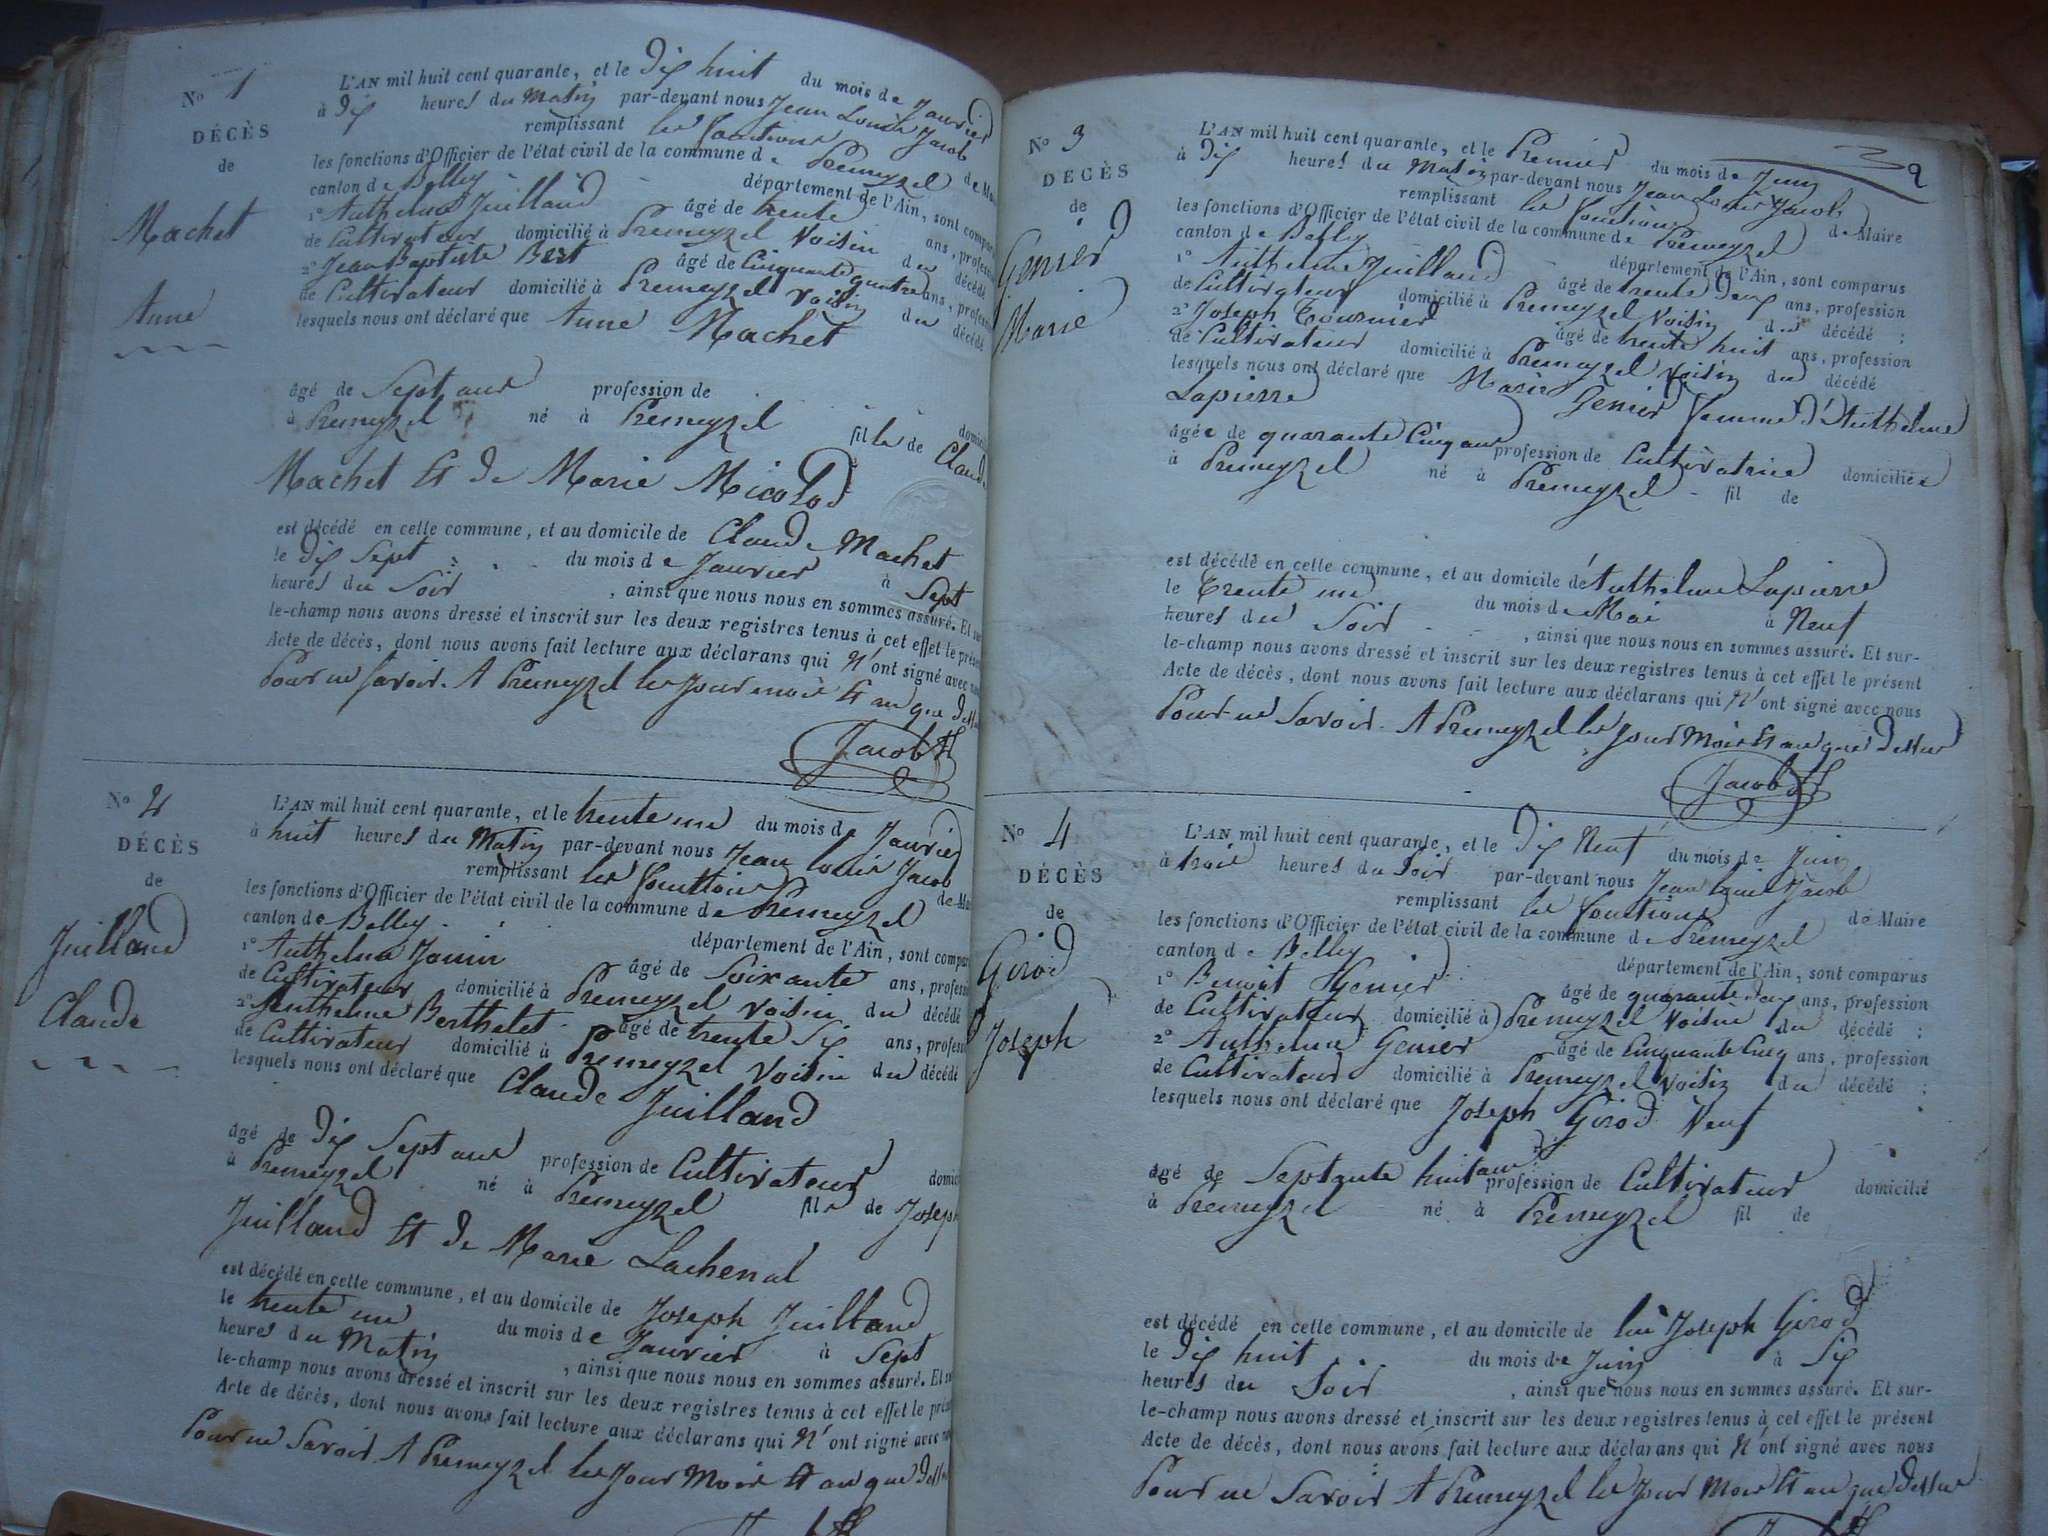 N° 1
DÉCÈS
de
Machet
Anne
L'AN mil huit cent quarante, et le dix huit du mois de Janvier
à dix heures du Matin par-devant nous Jean Louis Jacob
remplissant les fonctions de Maire
les fonctions d'Officier de l'état civil de la commune de Premeyzel
canton de Belley département de l'Ain, sont compar
1° Anthelme Juilland âgé de trente ans, profession
de Cultivateur domicilié à Premeyzel Voisin du décédé
2° Jean Baptiste Best âgé de Cinquante quatre ans, profession
de Cultivateur domicilié à Premeyzel Voisin du décédé
lesquels nous ont déclaré que Anne Machet
âgé de Sept ans profession de domici
à Premeyzel né à Premeyzel fille de Claude
Machet Et de Marie Micolod
est décédé en celle commune, et au domicile de Claude Machet
le dix Sept du mois de Janvier à Sept
heures du Soir, ainsi que nous nous en sommes assuré. Et sur
le-champ nous avons dressé et inscrit sur les deux registres tenus à cet effet le présen
Acte de décès, dont nous avons fait lecture aux déclarans qui N'ont signé avec nous
Pour ne Savoir. A Premeyzel les Jour mois Et an que dessus
Jacob
N° 2
DÉCÈS
de
Juilland
Claude
L'AN mil huit cent quarante, et le trente un du mois de Janvier
à huit heures du Matin par-devant nous Jean Louis Jacob
remplissant les fonctions de Mai
les fonctions d'Officier de l'état civil de la commune de Premeyzel
canton de Belley département de l'Ain, sont compar
1° Anthelme Janin âgé de Soixante ans, profession
de Cultivateur domicilié à Premeyzel Voisin du décédé
2° Anthelme Berthelet âgé de trente Six ans, profession
de Cultivateur domicilié à Premeyzel Voisin du décédé
lesquels nous ont déclaré que Claude Juilland
âgé de dix Sept ans profession de Cultivateur domici
à Premeyzel né à Premeyzel fils de Joseph
Juilland Et de Marie Lachenal
est décédé en celle commune, et au domicile de Joseph Juilland
le trente un du mois de Janvier à Sept
heures du Matin, ainsi que nous nous en sommes assuré. Et su
le-champ nous avons dressé et inscrit sur les deux registres tenus à cet effet le prése
Acte de décès, dont nous avons fait lecture aux déclarans qui N'ont signé avec nous
Pour ne Savoir A Premeyzel les Jour Mois Et an que dessus
N° 3
DÉCÈS
de
Genier
Marie
L'AN mil huit cent quarante, et le Premier du mois de Juin
à dix heures du Matin par-devant nous Jean Louis Jacob
remplissant les fonctions de Maire
les fonctions d'Officier de l'état civil de la commune de Premeyzel
canton de Belley département de l'Ain, sont comparus
1° Anthelme Juilland âgé de trente deux ans, profession
de Cultivateur domicilié à Premeyzel Voisin du décédé ;
2° Joseph Tournier âgé de trente huit ans, profession
de Cultivateur domicilié à Premeyzel Voisin du décédé
lesquels nous ont déclaré que Marie Genier femme d'Anthelme
Lapierre
âgée de quarante Cinq ans profession de Cultivatrice domiciliée
à Premeyzel né à Premeyzel fil de
est décédé en celle commune, et au domicile d'Anthelme Lapierre
le Trente un du mois de Mai à Neuf
heures du Soir, ainsi que nous nous en sommes assuré. Et sur-
le-champ nous avons dressé et inscrit sur les deux registres tenus à cet effet le présent
Acte de décès, dont nous avons fait lecture aux déclarans qui N'ont signé avec nous
Pour ne Savoir. A Premeyzel les Jour Mois Et an que dessus
Jacob
N° 4
DÉCÈS
de
Girod
Joseph
L'AN mil huit cent quarante, et le dix Neuf du mois de Juin
à trois heures du Soir par-devant nous Jean Louis Jacob
remplissant les fonctions de Maire
les fonctions d'Officier de l'état civil de la commune de Premeyzel
canton de Belley département de l'Ain, sont comparus
1° Benoit Genier âgé de quarante deux ans, profession
de Cultivateur domicilié à Premeyzel Voisin du décédé ;
2° Anthelme Genier âgé de Cinquante Cinq ans, profession
de Cultivateur domicilié à Premeyzel Voisin du décédé :
lesquels nous ont déclaré que Joseph Girod Veuf
âgé de Septante huit ans profession de Cultivateur domicilié
à Premeyzel né à Premeyzel fil de
est décédé en celle commune, et au domicile de lui Joseph Girod
le dix huit du mois de Juin à Six
heures du Soir, ainsi que nous nous en sommes assuré. Et sur-
le-champ nous avons dressé et inscrit sur les deux registres tenus à cet effet le présent
Acte de décès, dont nous avons fait lecture aux déclarans qui N'ont signé avec nous
Pour ne Savoir A Premeyzel les Jour Mois Et an que dessus